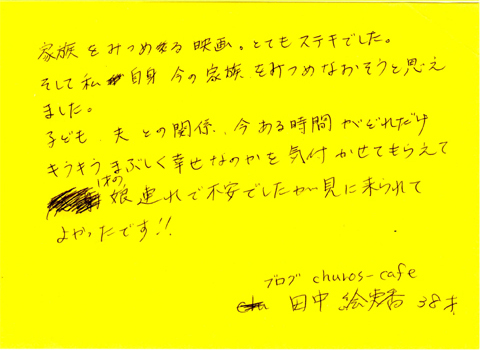 家族をみつめる映画。とてもステキでした。
そして私自身今の家族をみつめなおそうと思え
ました。
子ども、夫との関係、今ある時間がどれだけ
キラキラまぶしく幸せなのかを気付かせてもらえて
1才の娘連れで不安でしたが見に来られて
よかったです!!
ブログ churos-cafe
田中 絵 香 38才